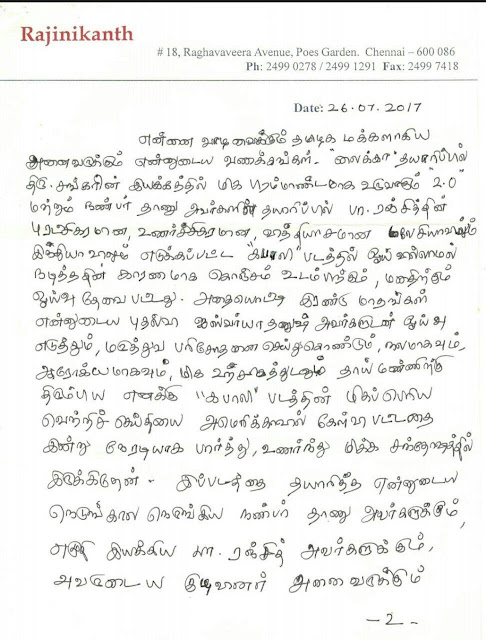 Rajinikanth
# 18, Raghavaveera Avenue, Poes Garden. Chennai – 600 086
Ph: 2499 0278 / 2499 1291 Fax: 2499 7418
Date: 26.07.2017
என்னை வாழ வைக்கும் தமிழக மக்களாகிய
அனைவருக்கும் என்னுடைய வணக்கங்கள். "லைக்கா" தயாரிப்பில்
திரு. சங்கரின் இயக்கத்தில் மிக பிரம்மாண்டமாக உருவாகும் "2.0"
மற்றும் நண்பர் தாணு அவர்களின் தயாரிப்பில் பா. ரஞ்சித்தின்
புரட்சிகரமான, உணர்ச்சிகரமான, வித்தியாசமான மலேசியாவிலும்
இந்தியாவிலும் எடுக்கப்பட்ட "கபாலி" படத்தில் ஓய்வில்லாமல்
நடித்ததின் காரணமாக கொஞ்சம் உடம்பிற்கும், மனதிற்கும்
ஓய்வு தேவை பட்டது. அதையொட்டி இரண்டு மாதங்கள்
என்னுடைய புதல்வி ஐஸ்வர்யா தனுஷ் அவர்களுடன் ஓய்வு
எடுத்தும், மருத்துவ பரிசோதனை செய்துகொண்டும், நலமாகவும்,
ஆரோக்யமாகவும், மிக உற்சாகத்துடனும் தாய் மண்ணிற்கு
திரும்பிய எனக்கு "கபாலி" படத்தின் மிகப்பெரிய
வெற்றிச் செய்தியை அமெரிக்காவில் கேள்வி பட்டதை
இன்று நேரடியாக பார்த்து, உணர்ந்து மிக்க சந்தோஷத்தில்
இருக்கிறேன். இப்படத்தை தயாரித்த என்னுடைய
நெடுங்கால நெருங்கிய நண்பர் தாணு அவர்களுக்கும்,
எழுதி இயக்கிய பா. ரஞ்சித் அவர்களுக்கும்,
அவருடைய குழுவினர் அனைவருக்கும்
-2-